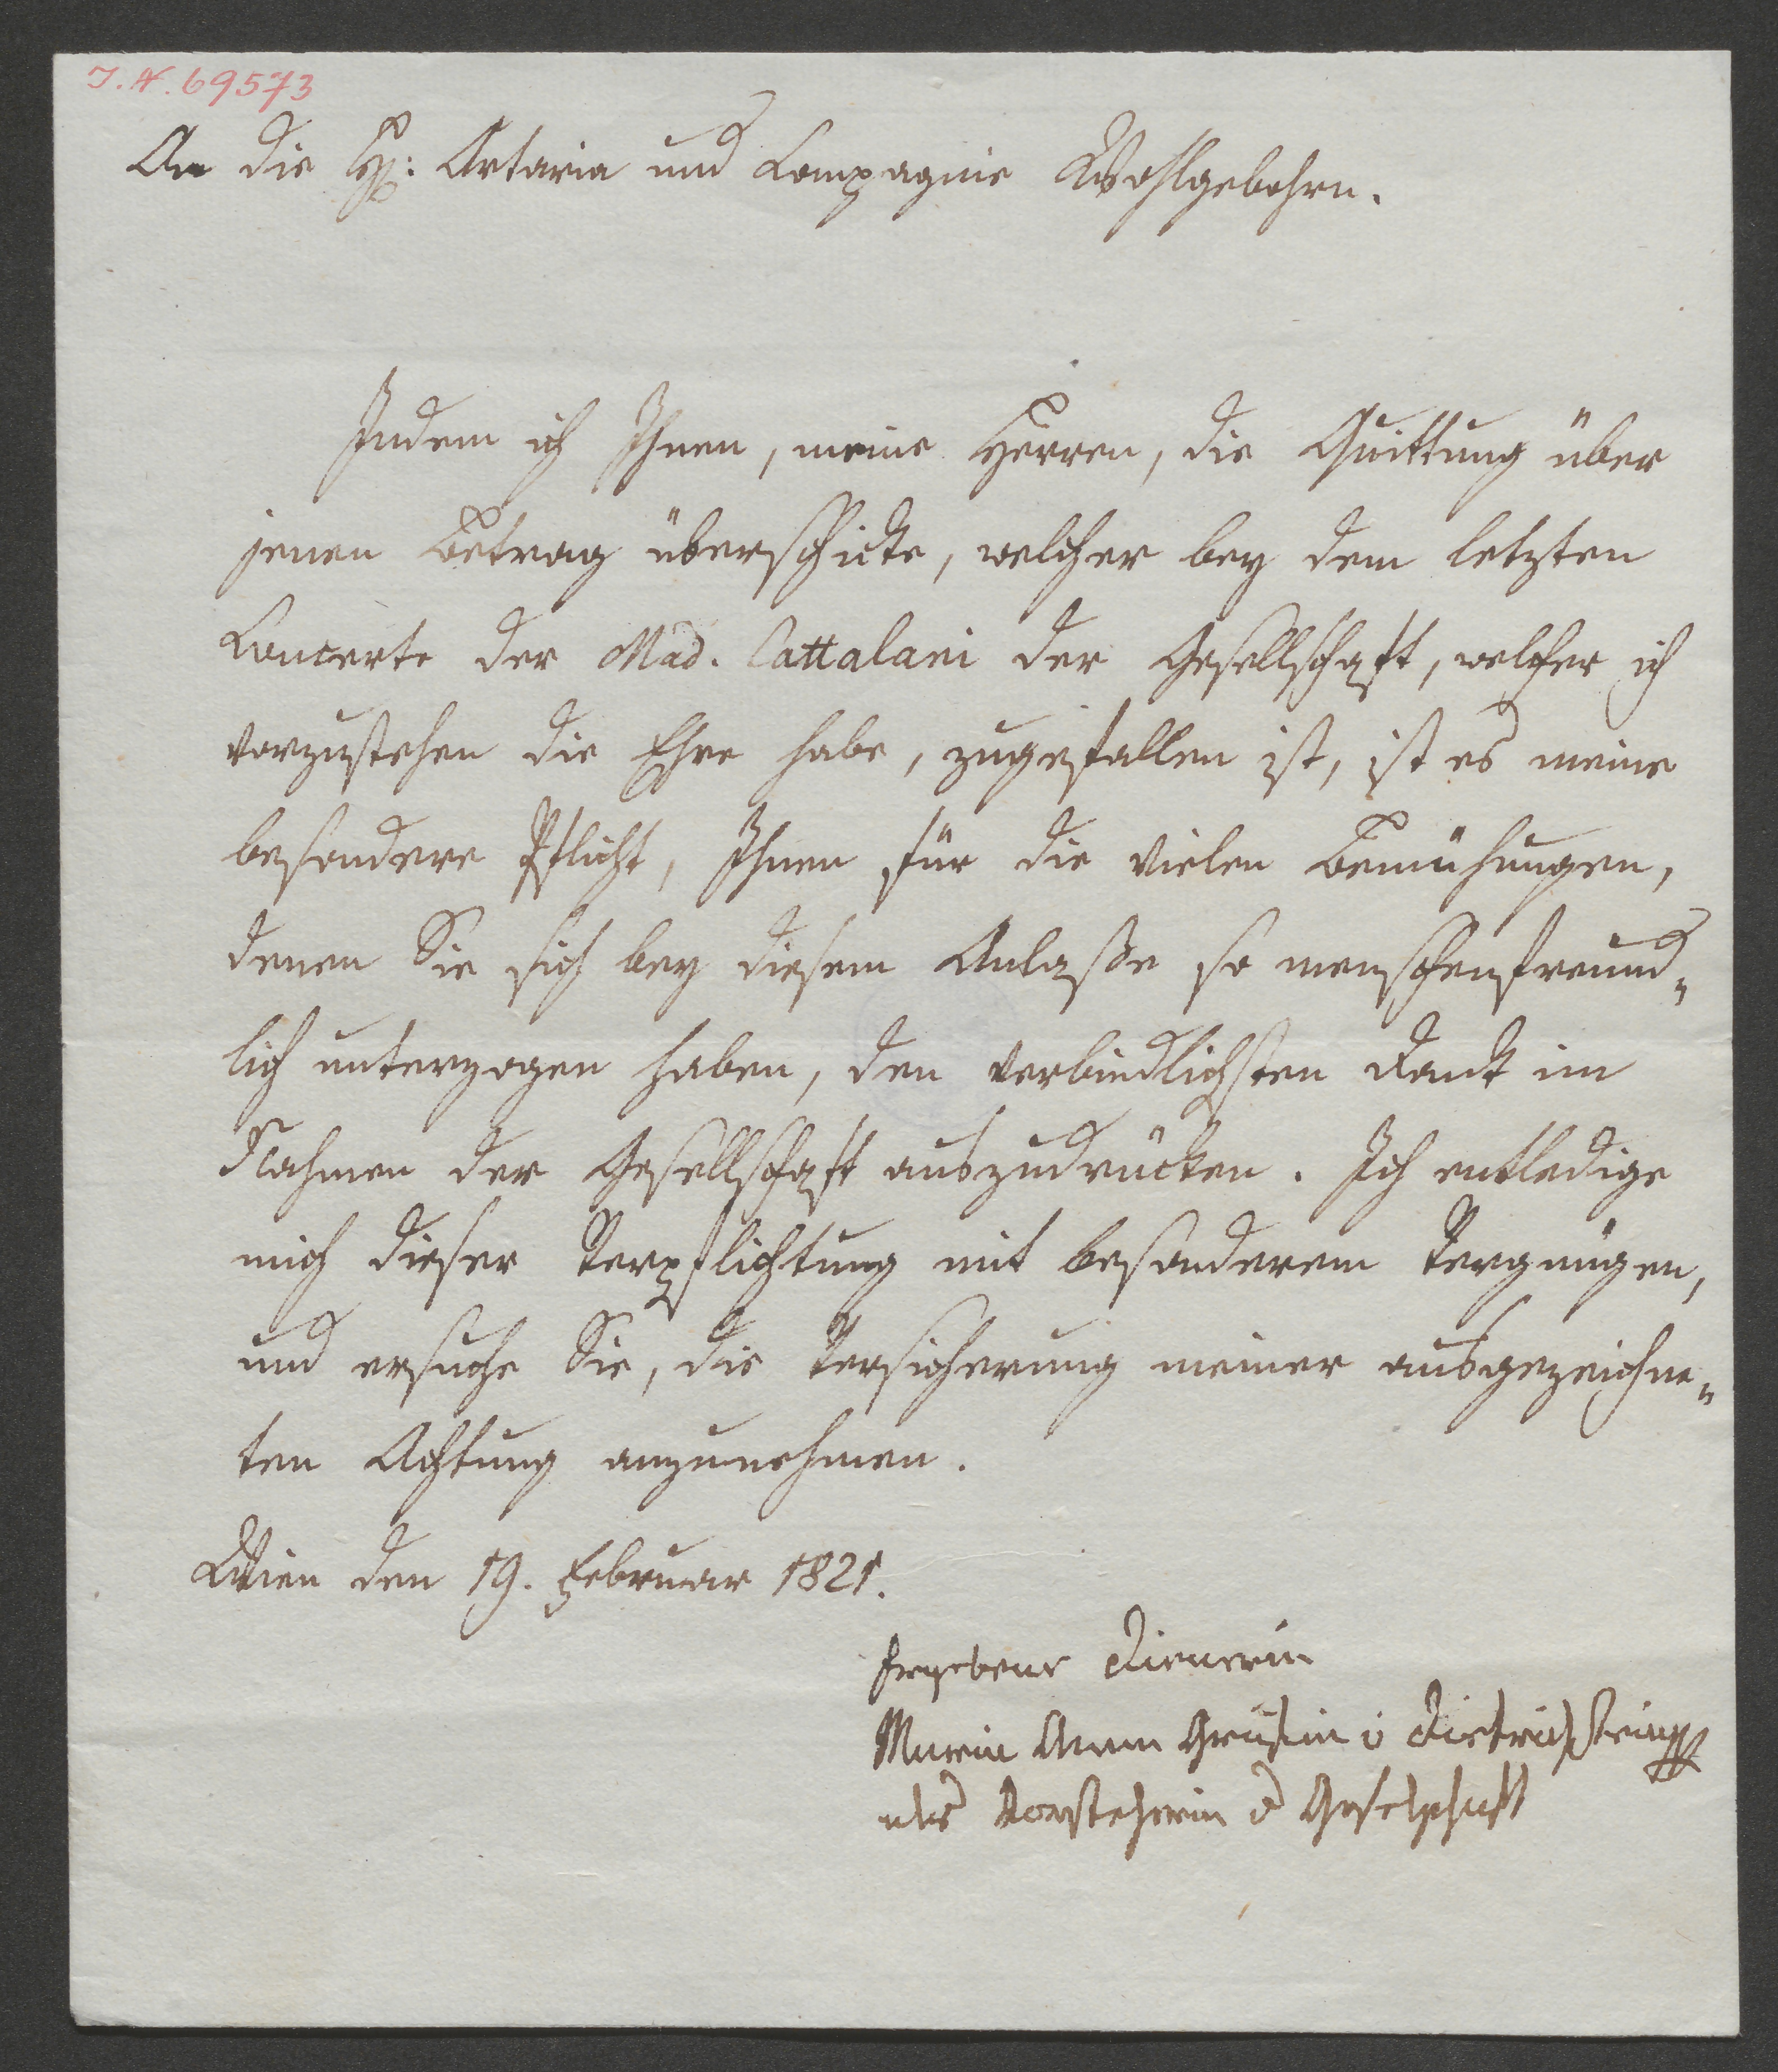 I.N. 69573
An die H: Artaria und Compagnie Wohlgebohrn.
Indem ich Ihnen, meine Herren, die Quittung über
jenen Betrag überschicke, welcher bey dem letzten
Concerte der Mad. Cattalani der Gesellschaft, welcher ich
vorzustehen die Ehre habe, zugefallen ist, ist es meine
besondere Pflicht, Ihnen für die vielen Bemühungen,
denen Sie sich bey diesem Anlaße so menschenfreund„
lich unterzogen haben, den verbindlichsten Dank im
Nahmen der Gesellschaft auszudrücken. Ich entledige
mich dieser Verpflichtung mit besonderem Vergnügen,
und ersuche Sie, die Versicherung meiner ausgezeichne„
ten Achtung anzunehmen.
Wien den 19. Februar 1821.
Ergebene Dienerin
Maria Anna Gräfin v Dietrichstein
als Vorsteherin d Geselschaft